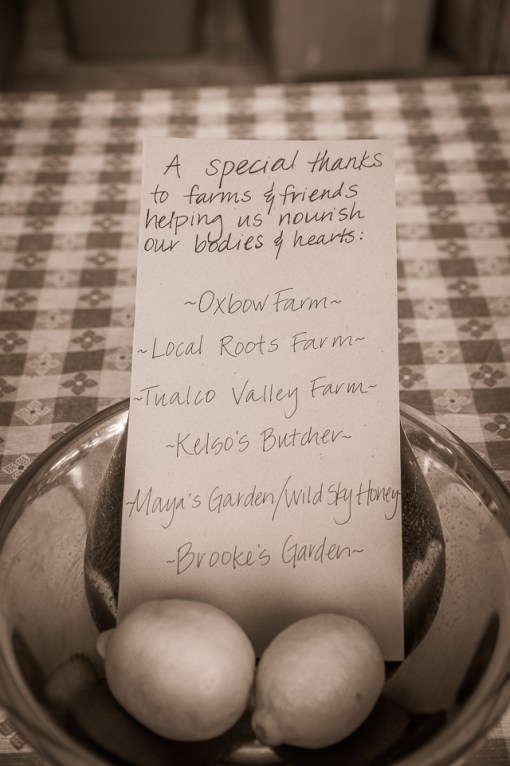 A special thanks
to farms & friends
helping us nourish
our bodies & hearts:
~Oxbow Farm~
~Local Roots Farm~
~Tualco Valley Farm~
~Kelso's Butcher~
~Maya's Garden/Wild Sky Honey~
~Brooke's Garden~